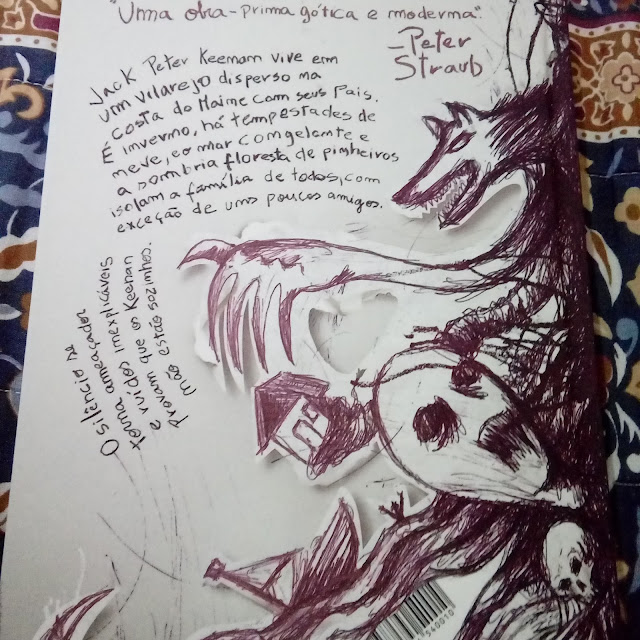 "Uma obra-prima gótica e moderma"
-Peter
Straub
Jack Peter Keeman vive em
um vilarejo disperso ma
costa do Maine com seus Pais.
É inverno, há tempestades de
neve, eo mar comgelamte e
a sombria floresta de pinheiros
isolam a família de todos, com
exceção de ums poucos amigos.
O silêncio se
torna ameaçador
e ruídos inexplicáveis
Provam que os Keenan
não estão sozinhos.